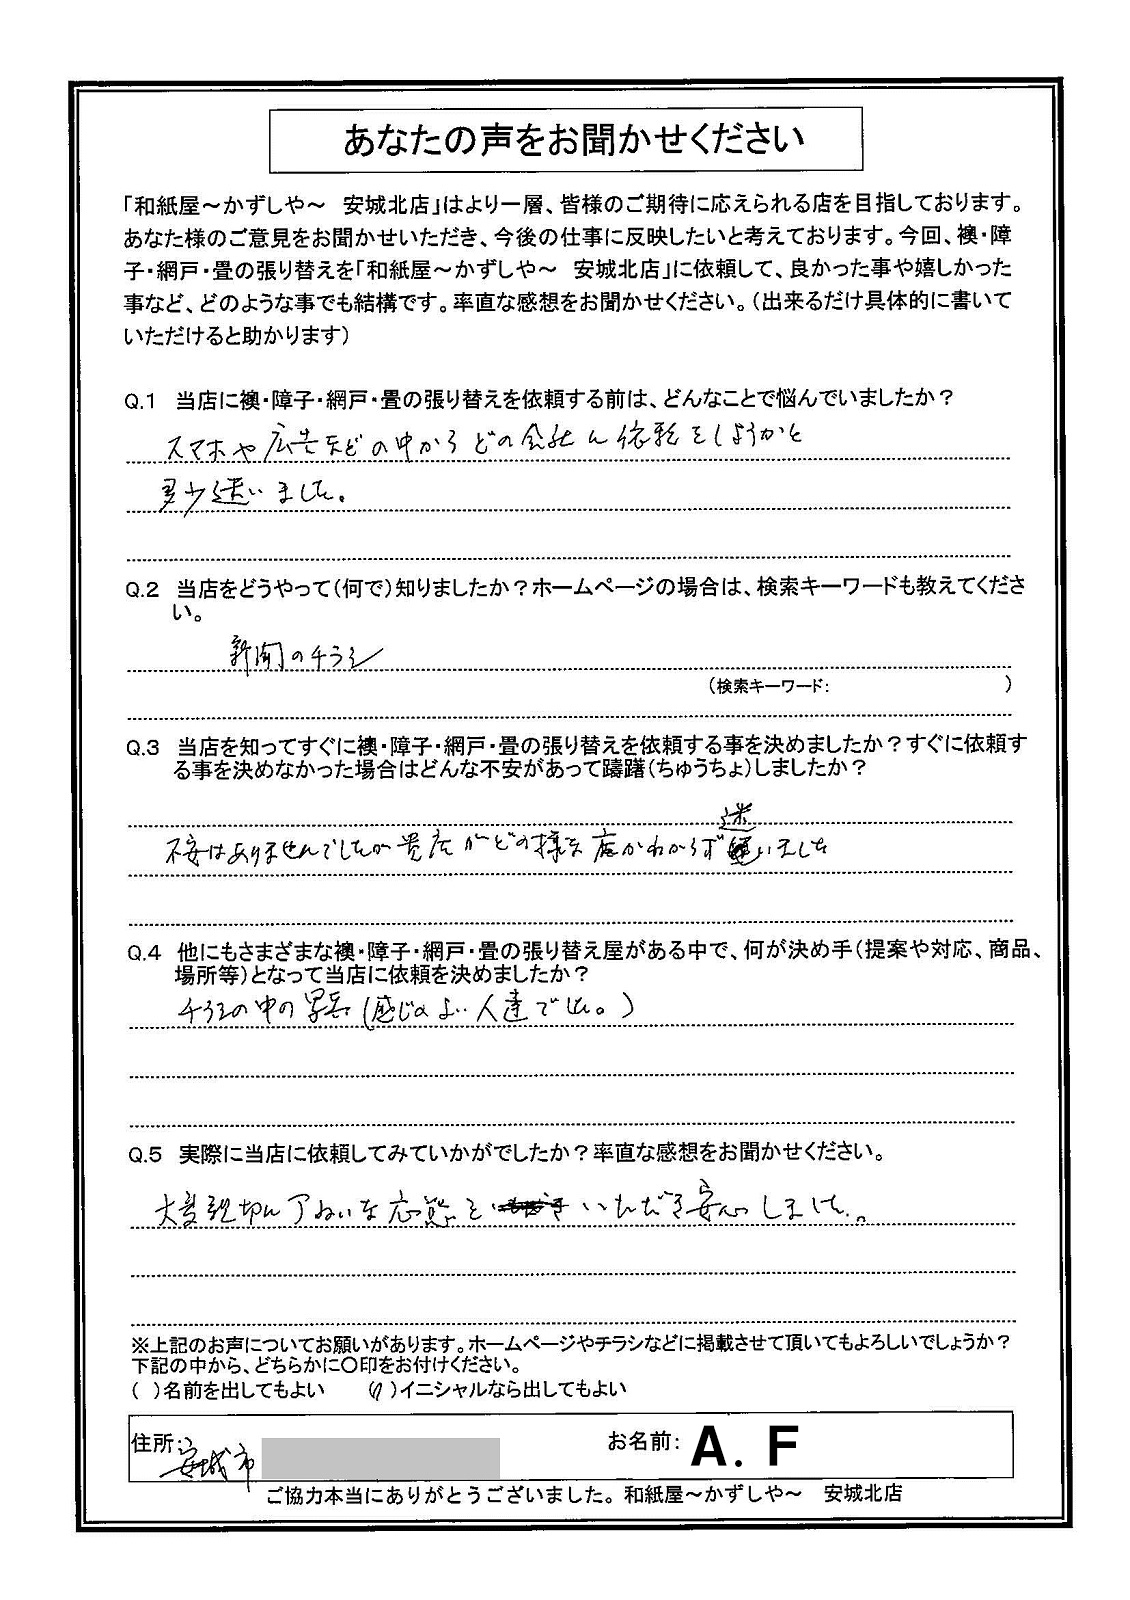 あなたの声をお聞かせください
「和紙屋～かずしや～　安城北店」はより一層、皆様のご期待に応えられる店を目指しております。
あなた様のご意見をお聞かせいただき、今後の仕事に反映したいと考えております。今回、襖・障
子・網戸・畳の張り替えを「和紙屋～かずしや～　安城北店」に依頼して、良かった事や嬉しかった
事など、どのような事でも結構です。率直な感想をお聞かせください。（出来るだけ具体的に書いて
いただけると助かります）
Q.1　当店に襖・障子・網戸・畳の張り替えを依頼する前は、どんなことで悩んでいましたか？
スマホや広告などの中からどの会社に依頼をしようかと
多少迷いました。
Q.2　当店をどうやって（何で）知りましたか？ホームページの場合は、検索キーワードも教えてくださ
い。
新聞のチラシ
（検索キーワード：　　　　　　　　　　）
Q.3　当店を知ってすぐに襖・障子・網戸・畳の張り替えを依頼する事を決めましたか？すぐに依頼す
る事を決めなかった場合はどんな不安があって躊躇（ちゅうちょ）しましたか？
不安はありませんでしたが貴店がどの様な店かわからず迷いました
Q.4　他にもさまざまな襖・障子・網戸・畳の張り替え屋がある中で、何が決め手（提案や対応、商品、
場所等）となって当店に依頼を決めましたか？
チラシの中の写真（感じのよい人達でした。）
Q.5　実際に当店に依頼してみていかがでしたか？率直な感想をお聞かせください。
大変親切に丁ねいな応態をいただき安心しました。
※上記のお声についてお願いがあります。ホームページやチラシなどに掲載させて頂いてもよろしいでしょうか？
下記の中から、どちらかに〇印をお付けください。
（　）名前を出してもよい　　（〇）イニシャルなら出してもよい
住所：安城市　お名前：A．F
ご協力本当にありがとうございました。和紙屋～かずしや～　安城北店